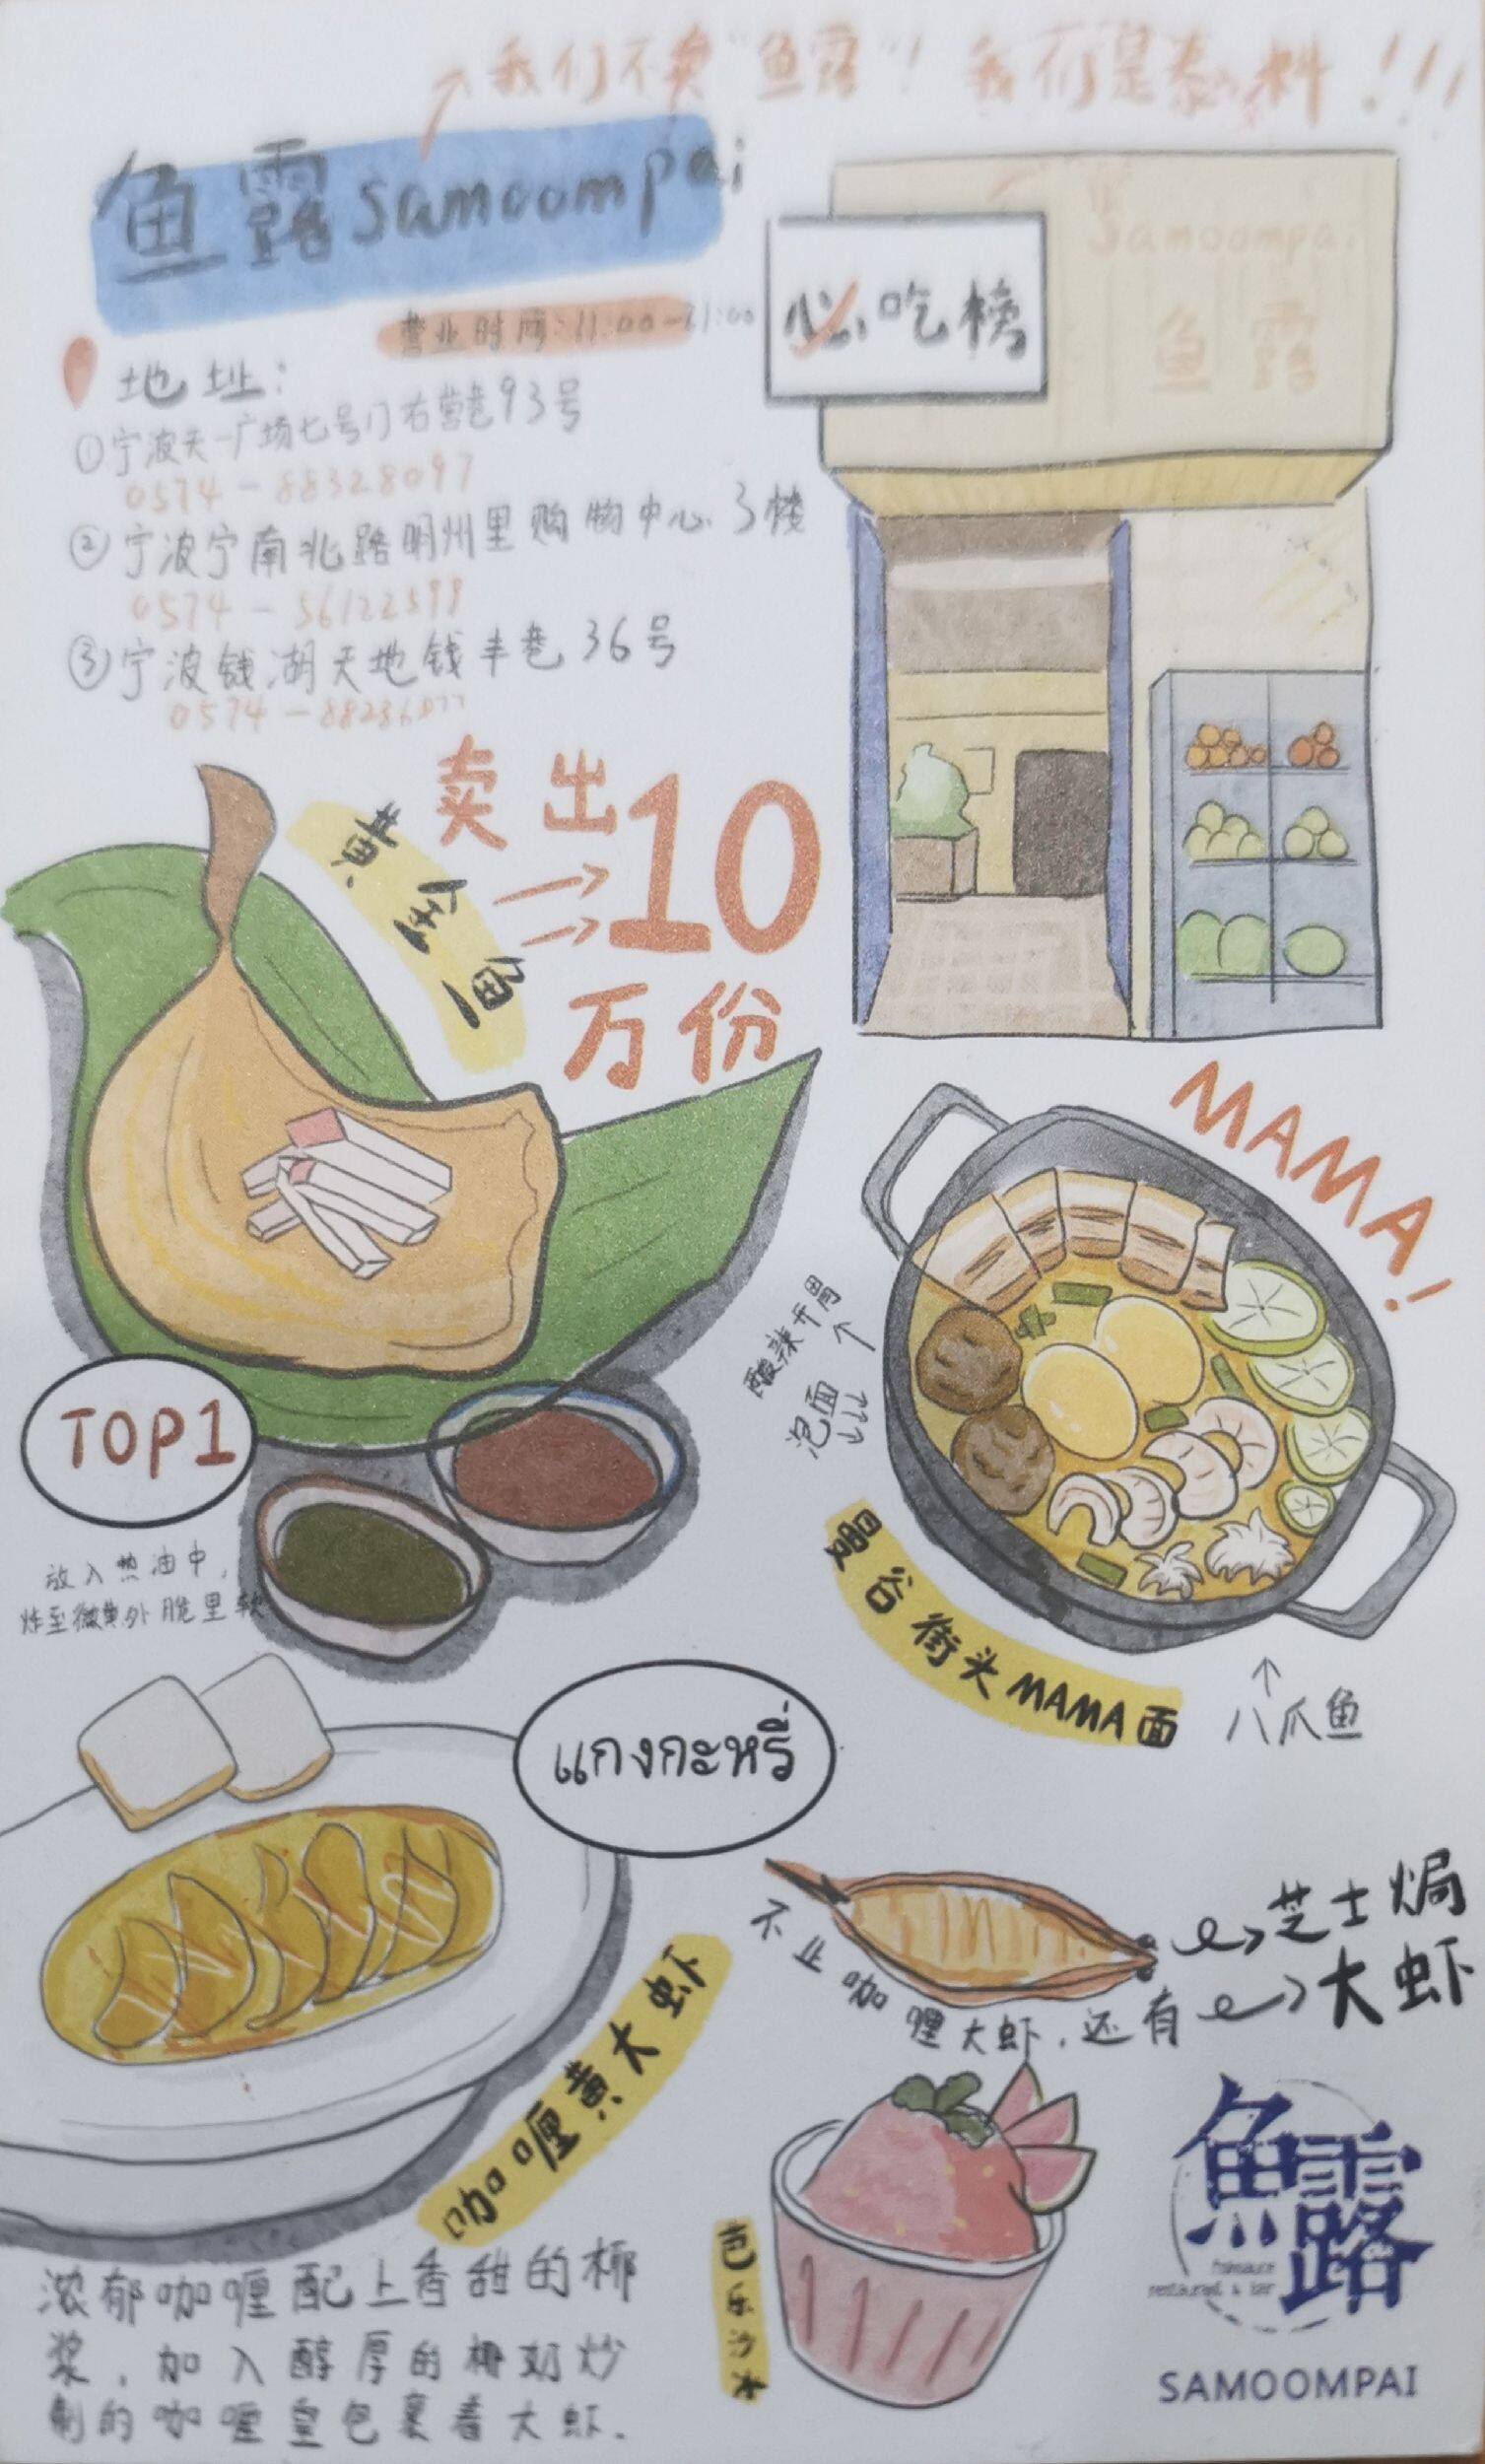 我们不卖"鱼露"! 我们是泰料!!!
鱼露samoompai
营业时间:11:00-21:00
必吃榜
Samoompai
鱼露
地址:
①宁波天一广场七号门右营巷93号
0574-88328097
②宁波宁南北路明州里购物中心3楼
0574-56122599
③宁波钱湖天地钱丰巷36号
0574-88286077
黄金鱼
卖出10
万份
TOP1
放入热油中,
炸至微黄外脆里软
MAMA!
酸辣开胃
泡面
曼谷街头MAMA面
八爪鱼
แกงกะหรี่
咖喱黄大虾
不止咖喱大虾,还有
芝士焗
大虾
浓郁咖喱配上香甜的椰
浆,加入醇厚的椰奶炒
制的咖喱皇包裹着大虾.
芭乐沙冰
魚露
restaurant & bar
SAMOOMPAI